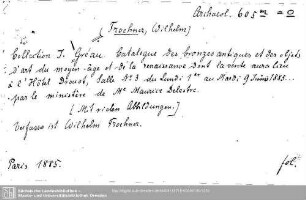 Archaeol. 605 m = 0
[Froehner, Wilhelm]
Collection J. Gréau. Catalogue des bronzes antiques et des objets
d'art du moyen-âge et de la renaissance dont la vente aura lieu
à l'Hôtel Drouot, Salle No 3 du Lundi 1er au Mardi 9 Juin 1885...
par le ministère de Me Maurice Delestre.
[Mit vielen Abbildungen.]
Verfasser ist Wilhelm Froehner.
Paris 1885. fol.